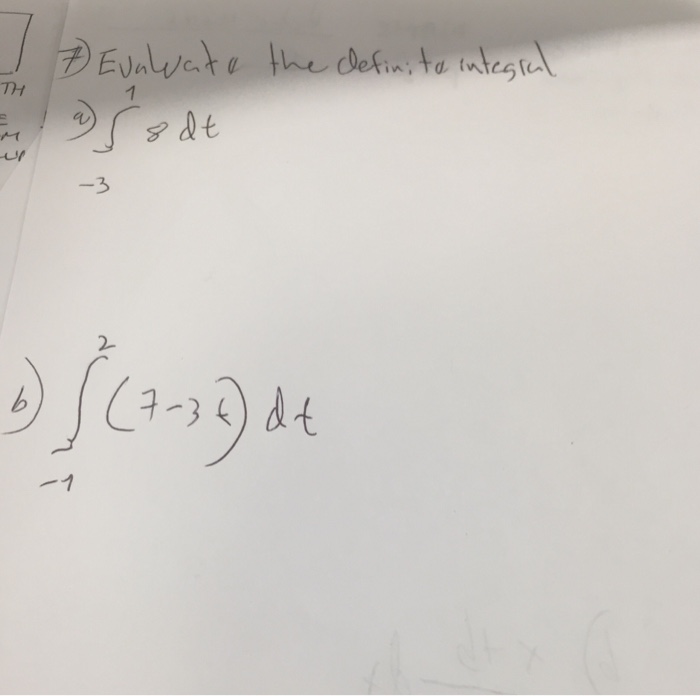 7) Evaluate the definite integral
a) ∫₋₃¹ 8 dt
b) ∫₋₁² (7-3t) dt